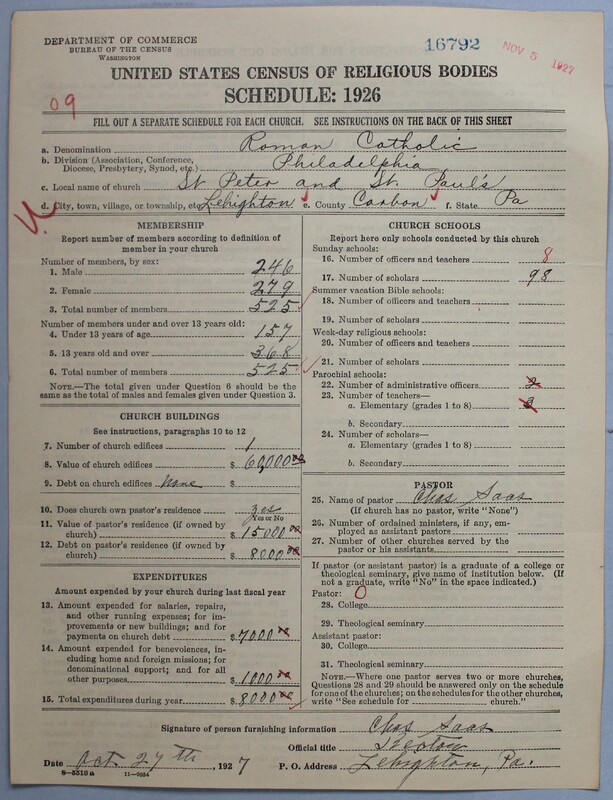 DEPARTMENT OF COMMERCE
BUREAU OF THE CENSUS
WASHINGTON
16792
NOV 5 1927
UNITED STATES CENSUS OF RELIGIOUS BODIES
SCHEDULE: 1926
09
FILL OUT A SEPARATE SCHEDULE FOR EACH CHURCH. SEE INSTRUCTIONS ON THE BACK OF THIS SHEET
a. Denomination Roman Catholic
b. Division (Association, Conference, Diocese, Presbytery, Synod, etc.) Philadelphia
c. Local name of church St Peter and St. Paul's
d. City, town, village, or township, etc. Lehighton e. County Carbon f. State Pa
MEMBERSHIP
Report number of members according to definition of
member in your church
Number of members, by sex:
1. Male 246
2. Female 279
3. Total number of members 525
Number of members under and over 13 years old:
4. Under 13 years of age 157
5. 13 years old and over 368
6. Total number of members 525
NOTE.—The total given under Question 6 should be
same as the total of males and females given under Question 3.
CHURCH BUILDINGS
See instructions, paragraphs 10 to 12
7. Number of church edifices 1
8. Value of church edifices $ 60,000 00
9. Debt on church edifices None $
10. Does church own pastor's residence? yes
Yes or No
11. Value of pastor's residence (if owned by
church) $ 15000 00
12. Debt on pastor's residence (if owned by
church) $ 8000 00
EXPENDITURES
Amount expended by your church during last fiscal year
13. Amount expended for salaries, repairs,
and other running expenses; for im-
provements or new buildings; and for
payments on church debt $ 7000 00
14. Amount expended for benevolences, in-
cluding home and foreign missions; for
denominational support; and for all
other purposes $ 1000 00
15. Total expenditures during year $ 8000 00
CHURCH SCHOOLS
Report here only schools conducted by this church
Sunday schools:
16. Number of officers and teachers 8
17. Number of scholars 98
Summer vacation Bible schools:
18. Number of officers and teachers
19. Number of scholars
Week-day religious schools:
20. Number of officers and teachers
21. Number of scholars
Parochial schools:
22. Number of administrative officers 2
23. Number of teachers—
a. Elementary (grades 1 to 8)
b. Secondary
24. Number of scholars—
a. Elementary (grades 1 to 8)
b. Secondary
PASTOR
25. Name of pastor Chas Saas
(If church has no pastor, write "None")
26. Number of ordained ministers, if any, em-
ployed as assistant pastors
27. Number of other churches served by the
pastor or his assistants
If pastor (or assistant pastor) is a graduate of a college or
theological seminary, give name of institution below. (If
not a graduate, write "No" in the space indicated.)
Pastor: 0
28. College
29. Theological seminary
Assistant pastor:
30. College
31. Theological seminary
NOTE.—Where one pastor serves two or more churches,
Questions 28 and 29 should be answered only on the schedule
for one of the churches; on the schedules for the other churches,
write "See schedule for ______ church."
Signature of person furnishing information Chas Saas
Official title Rector
Date Oct 27th, 1927 P. O. Address Lehighton, Pa.
8-5518a 11-9034